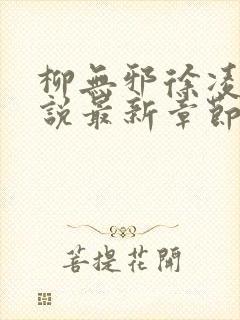 柳無邪徐凌
說最新章節
菩提花開